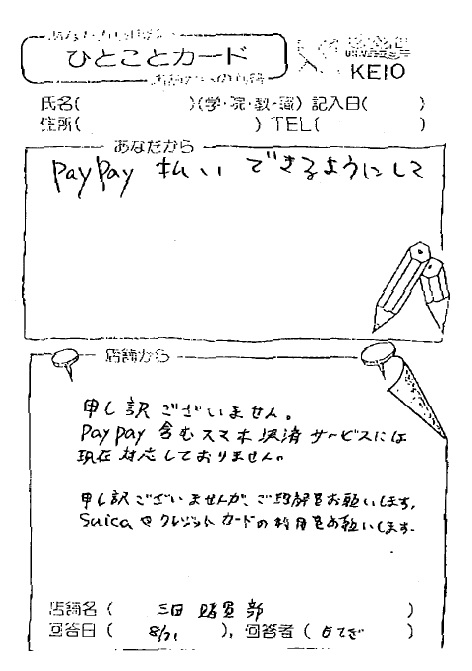 ひとことカード
KEIO
氏名( )(学・院・教・職) 記入日( )
住所( ) TEL( )
あなたから
PayPay 払い できるようにして
店舗から
申し訳ございません。
PayPay 含むスマホ決済サービスには
現在対応しておりません。
申し訳ございませんが、ご理解をお願いします。
Suicaやクレジットカードの利用をお願いします。
店舗名( 三田 購買部 )
回答日( 8/21 ), 回答者( )